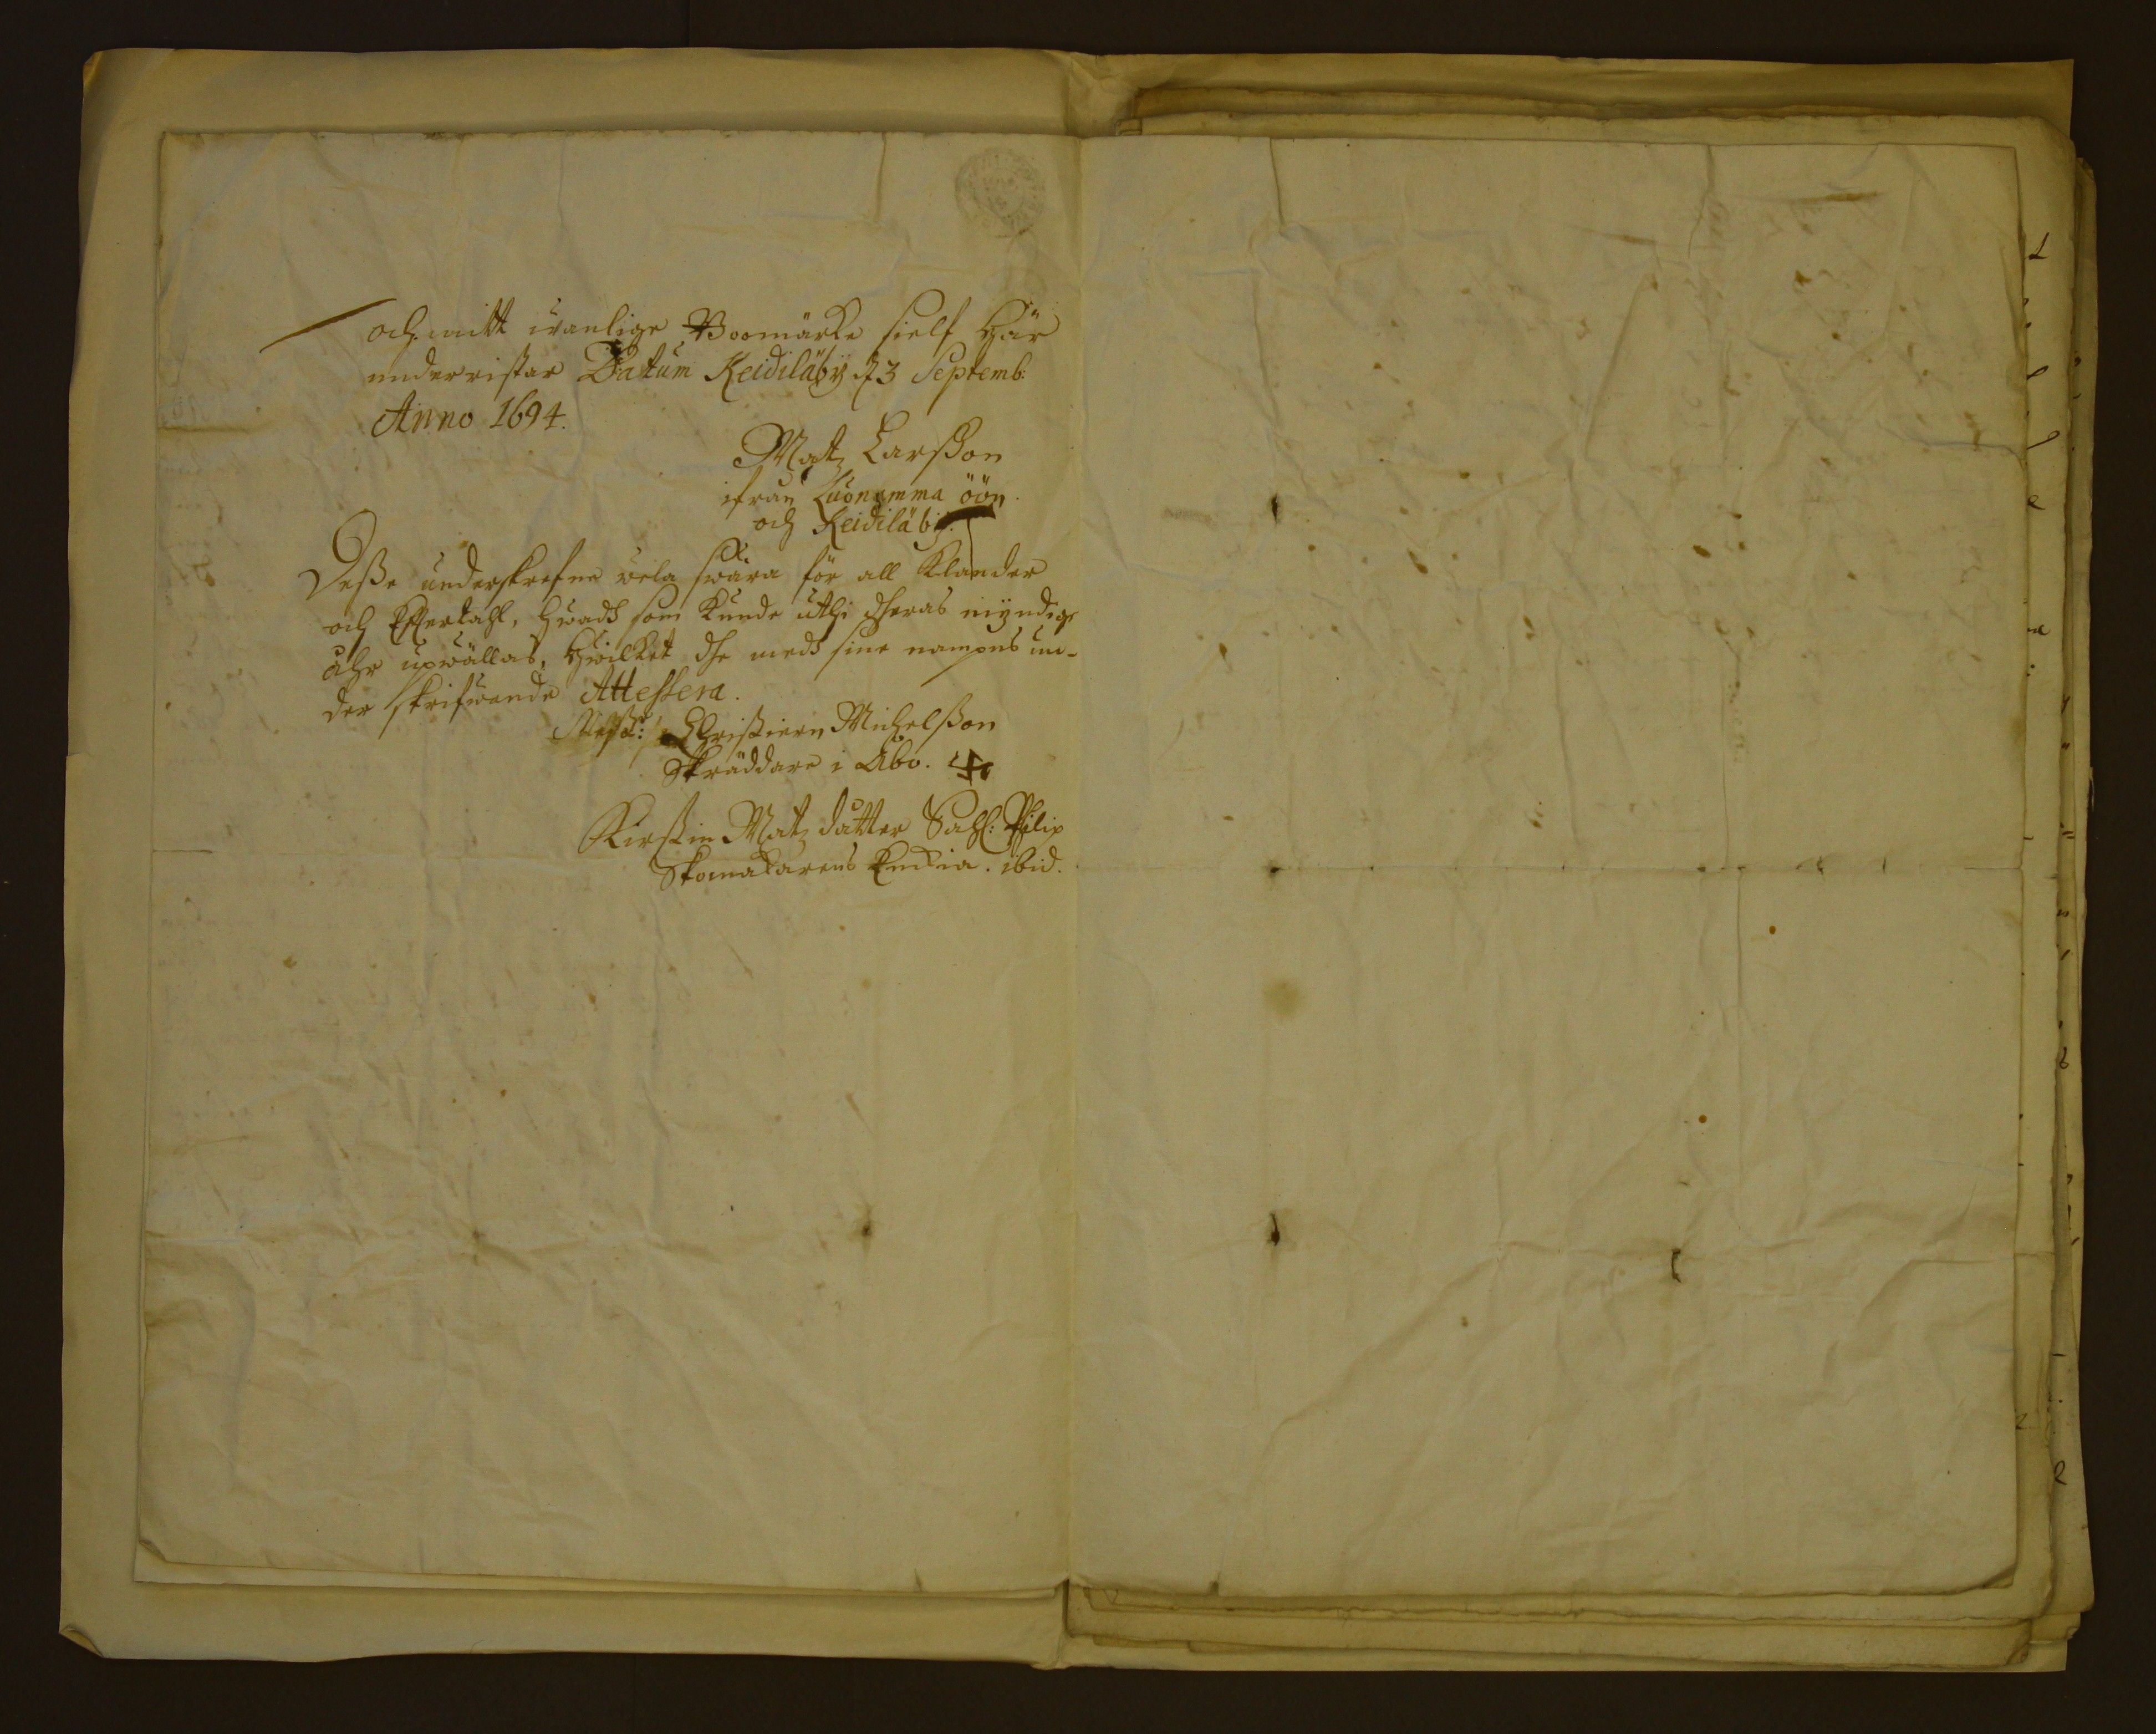 och mitt wanlige Boomärke sielf här
underristar Datum Keidiläby d 3 Septemb:
Anno 1694.
Matz Larsson
ifrån Luonnemma öön
och Keidiläby.
Desse underskrefne wela swara för all Klander
och Effertahl, hwadh som kunde uthi dheras myndige
åhr upwällas, hwilket dhe medh sine nampns un-
der skrifwande Attestera.
Mest: Christiern Michelsson
Skräddare i Åbo.
Kirstin Matz datter Sahl: Philip
Skomakarens Enckia. ibid.